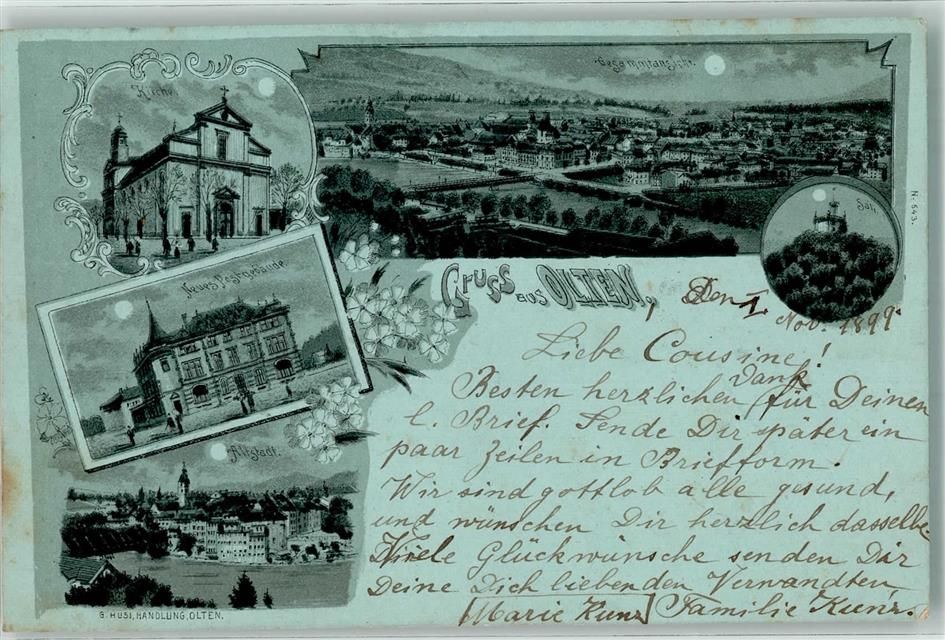 Kirche.
Gesammtansicht.
Säli.
N: 643.
Neues Postgebäude
Altstadt.
G. HUSI, HANDLUNG, OLTEN.
Gruss aus OLTEN,
Den 1.
Nov. 1899.
Liebe Cousine!
Dank
Besten herzlichen für Deinen
l. Brief. Sende Dir später ein
paar Zeilen in Briefform.
Wir sind gottlob alle gesund,
und wünschen Dir herzlich dasselbe
Viele Glückwünsche senden Dir
Deine Dich liebenden Verwandten
Marie Kunz Familie Kunz.